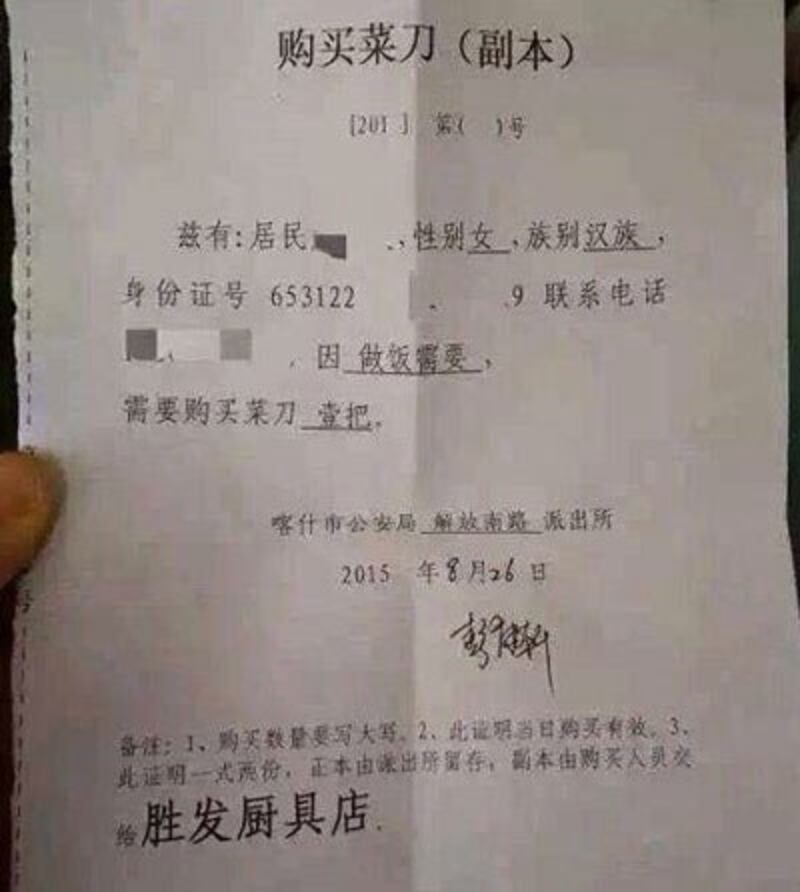 购买菜刀(副本)
[201 ] 第( )号
兹有:居民 ,性别女,族别汉族,
身份证号 653122 9 联系电话
因 做饭需要,
需要购买菜刀 壹把.
喀什市公安局 解放南路 派出所
2015 年8月26日
备注:1、购买数量要写大写。2、此证明当日购买有效。3、
此证明一式两份,正本由派出所留存,副本由购买人员交
给胜发厨具店.
号